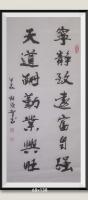 寧靜致遠富自强
天道酬勤業興旺
68x138